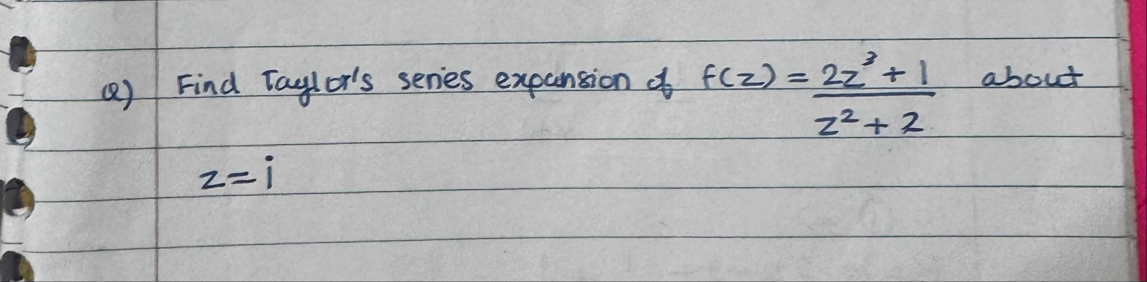 Q) Find Taylor's series expansion of f(z) = 2z³ + 1 about
z² + 2
z = i